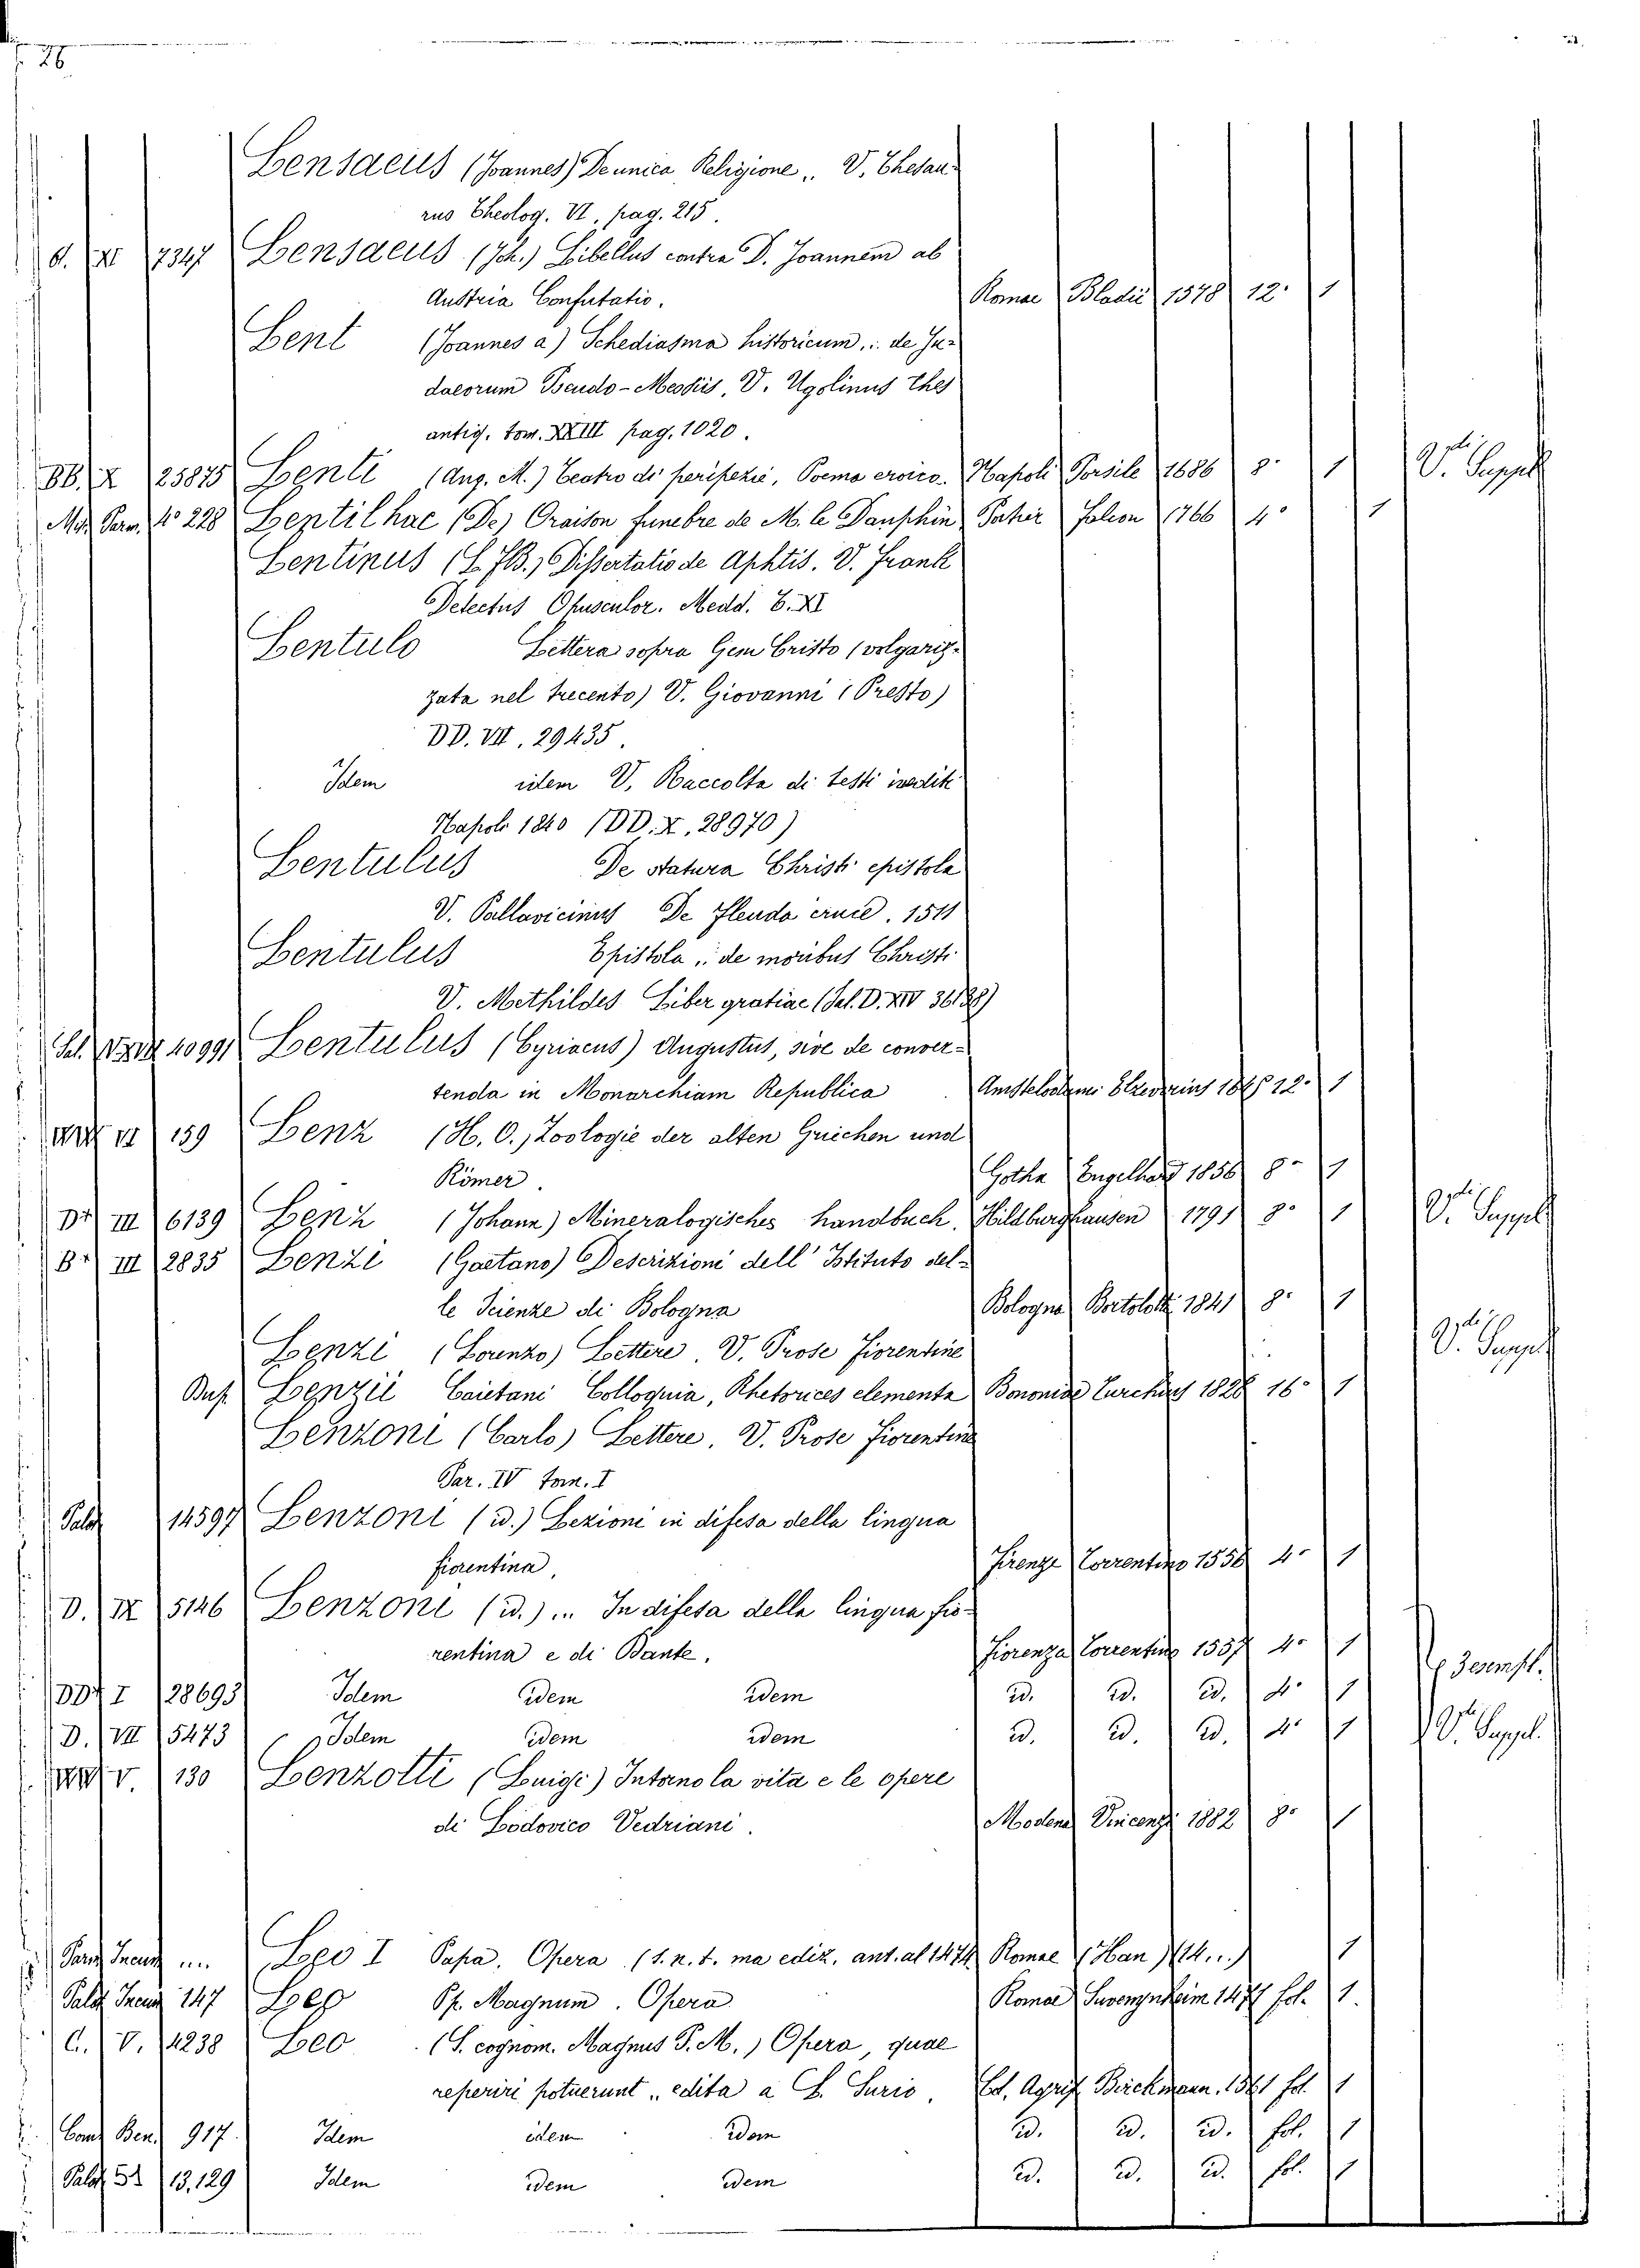 26
Lensaeus (Joannes) De unica Religione .. V. Thesau-
rus Theolog. VI, pag. 215.
d. XI 7347 Lensaeus (Joh.) Libellus contra D. Joannem ab
Austria Confutatio. Romae Bladii 1578 12° 1
Lent (Joannes a) Schediasma historicum .. de Ju-
daeorum Pseudo-Messiis, V. Ugolinus Thes
antiq. tom. XXIII pag. 1020.
BB. X 25875 Lenti (Aug. M.) Teatro di peripezie, Poema eroico. Napoli Porsile 1686 8° 1 V. Suppl
Mis. Parm. 4° 228 Lentilhac (De) Oraison funebre de M. le Dauphin 1766 4° 1
Lentinus (L. JB.) Dissertatio de Aphtis. V. Frank
Delectus Opusculor. Medd. T. XI
Lentulo Lettera sopra Gem Cristo (volgariz-
zata nel trecento) V. Giovanni (Presto)
DD. VII. 29435.
Idem idem V. Raccolta di testi inediti
Napoli 1840 (DD. X. 28970)
Lentulus De statura Christi epistola
V. Pallavicinus De flenda cruce. 1511
Lentulus Epistola .. de moribus Christi
V. Methildes Liber gratiae (Sel. D. XIV 36138)
Sel. 40991 Lentulus (Cyriacus) Augustus, sive de conver-
tenda in Monarchiam Republica Amstelodami Elzevirius 12° 1
VI 159 Lenz (H. O.) Zoologie der alten Griechen und
Römer. Gotha Engelhard 1856 8° 1
III 6139 Lenz (Johann) Mineralogisches handbuch. Hildburghausen 1791 8° 1 V. Suppl
III 2835 Lenzi (Gaetano) Descrizioni dell' Istituto del-
le Scienze di Bologna Bologna Bortolotti 1841 8° 1
Lenzi (Lorenzo) Lettere. V. Prose Fiorentine V. Suppl
Bus. Lenzii Caietani Colloquia, Rhetorices elementa Bononiae Turchius 1828 16° 1
Lenzoni (Carlo) Lettere. V. Prose Fiorentine
Par. IV tom. I
Palat 14597 Lenzoni (id.) Lezioni in difesa della lingua
fiorentina, Firenze Torrentino 1556 4° 1
D. IX 5146 Lenzoni (id.) ... In difesa della lingua fio-
rentina e di Dante. Fiorenza Torrentino 1557 4° 1
I 28693 Idem idem idem id. id. id. 4° 1
D. VII 5473 Idem idem idem id. id. id. 4° 1 V. Suppl.
V 130 Lenzotti (Luigi) Intorno la vita e le opere
di Lodovico Vedriani. Modena Vincenzi 1882 8° 1
... Leo I Papa. Opera (s. n. t. ma ediz. ant. al 1474 Romae (Han) (14..) 1
Palat Incun 147 Leo Pp. Magnum. Opera Romae 1477 fol. 1.
C. V. 4238 Leo (S. cognom. Magnus P. M.) Opera, quae
reperiri potuerunt .. edita a L. Surio. Col. Agrip. Birckmann. 1561 fol. 1
Ben. 917. Idem idem idem id. id. id. fol. 1
Palat 13,129 Idem idem idem id. id. id. fol. 1